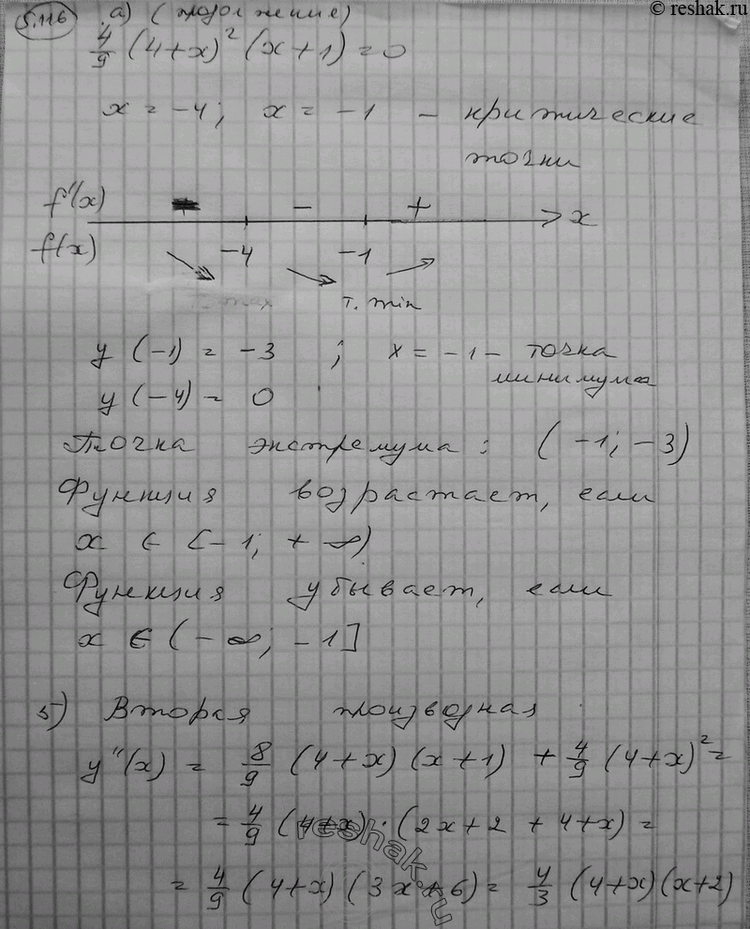 © reshak.ru
5.116 а) (продолжение)
4/9 (4+x)² (x+1) = 0
x = -4; x = -1 - критические
точки
f'(x) - + > x
f(x) -4 -1
max т. min
y (-1) = -3 ; x = -1 - точка
минимума
y (-4) = 0
Точка экстремума: (-1; -3)
Функция возрастает, если
x ∈ [-1; +∞)
Функция убывает, если
x ∈ (-∞; -1]
5) Вторая производная
y''(x) = 8/9 (4+x) (x+1) + 4/9 (4+x)² =
= 4/9 (4+x) · (2x+2 + 4+x) =
= 4/9 (4+x) (3x+6) = 4/3 (4+x)(x+2)
reshak.ru